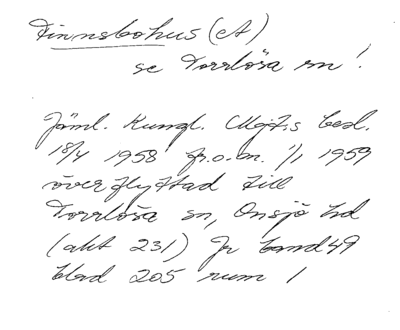 Finnsbohus (A)
se Torrlösa sn!
Jäml. Kungl. Maj:ts besl.
18/4 1958 fr.o.m. 1/1 1959
överflyttad till
Torrlösa sn, Onsjö hd
(akt 231) Jr band 49
blad 205 rum 1